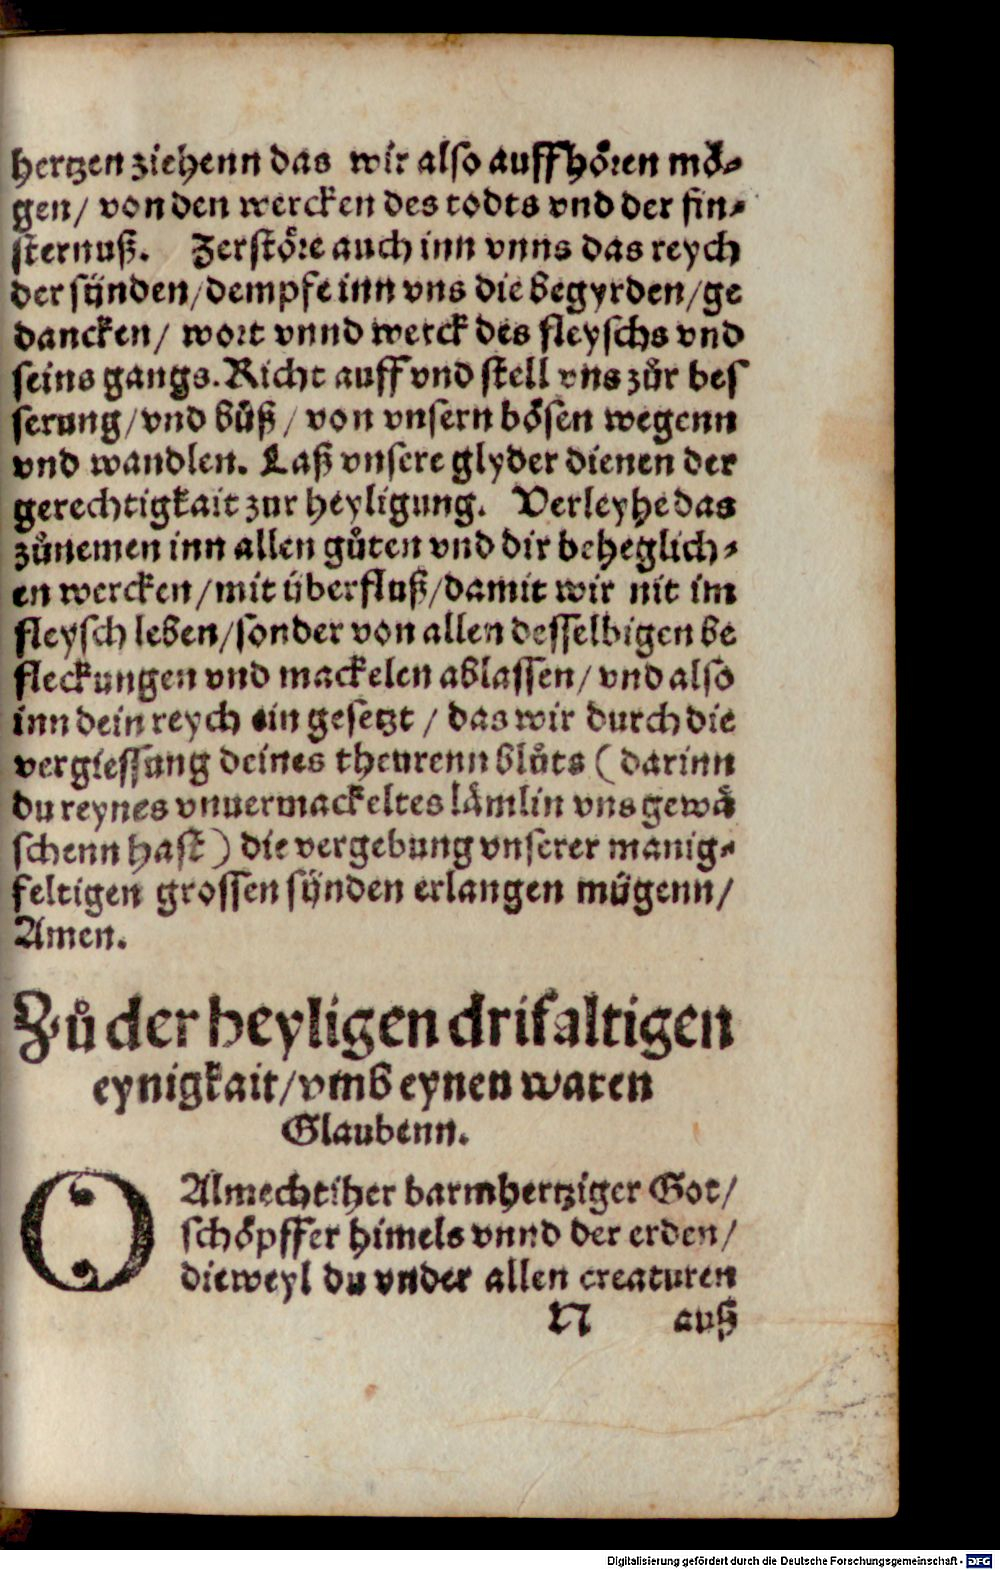 hertzen ziehenn das wir also auffhören mö-
gen/ von den wercken des todts vnd der fin-
sternuß. Zerstöre auch inn vnns das reych
der sünden/dempfe inn vns die begyrden/ge
dancken/ wort vnnd werck des fleyschs vnd
seins gangs. Richt auff vnd stell vns zůr bes
serung/vnd bůß/ von vnsern bösen wegenn
vnd wandlen. Laß vnsere glyder dienen der
gerechtigkait zur heyligung. Verleyhe das
zůnemen inn allen gůten vnd dir beheglich-
en wercken/mit überfluß/damit wir nit im
fleysch leben/sonder von allen desselbigen be
fleckungen vnd mackelen ablassen/ vnd also
inn dein reych ein gesetzt / das wir durch die
vergiessung deines theurenn blůts (darinn
du reynes vnuermackeltes lämlin vns gewä
schenn hast) die vergebung vnserer manig-
feltigen grossen sünden erlangen mügenn/
Amen.
Zů der heyligen drifaltigen
eynigkait/vmb eynen waren
Glaubenn.
O Almechtiher barmhertziger Got/
schöpffer himels vnnd der erden/
dieweyl du vnder allen creaturen
N auß
Digitalisierung gefördert durch die Deutsche Forschungsgemeinschaft - DFG